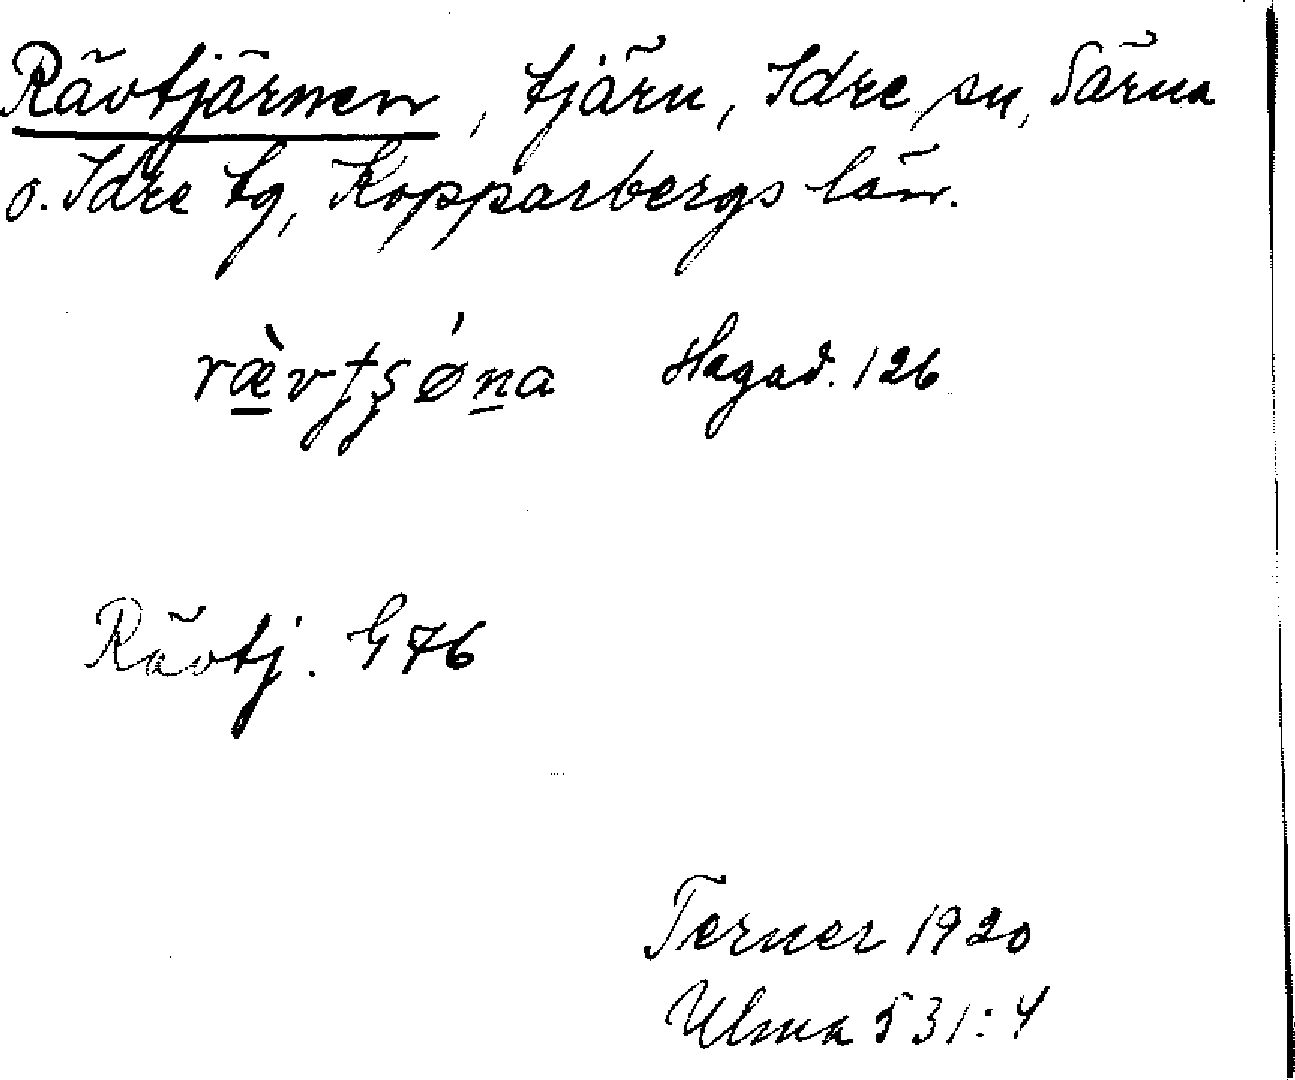 Rävtjärnen, tjärn, Idre sn, Särna
o. Idre tg, Kopparbergs län.
ræ̀vtʂǿna Hagad. 126
Rävtj. G 76
Terner 1920
Ulma 531:4